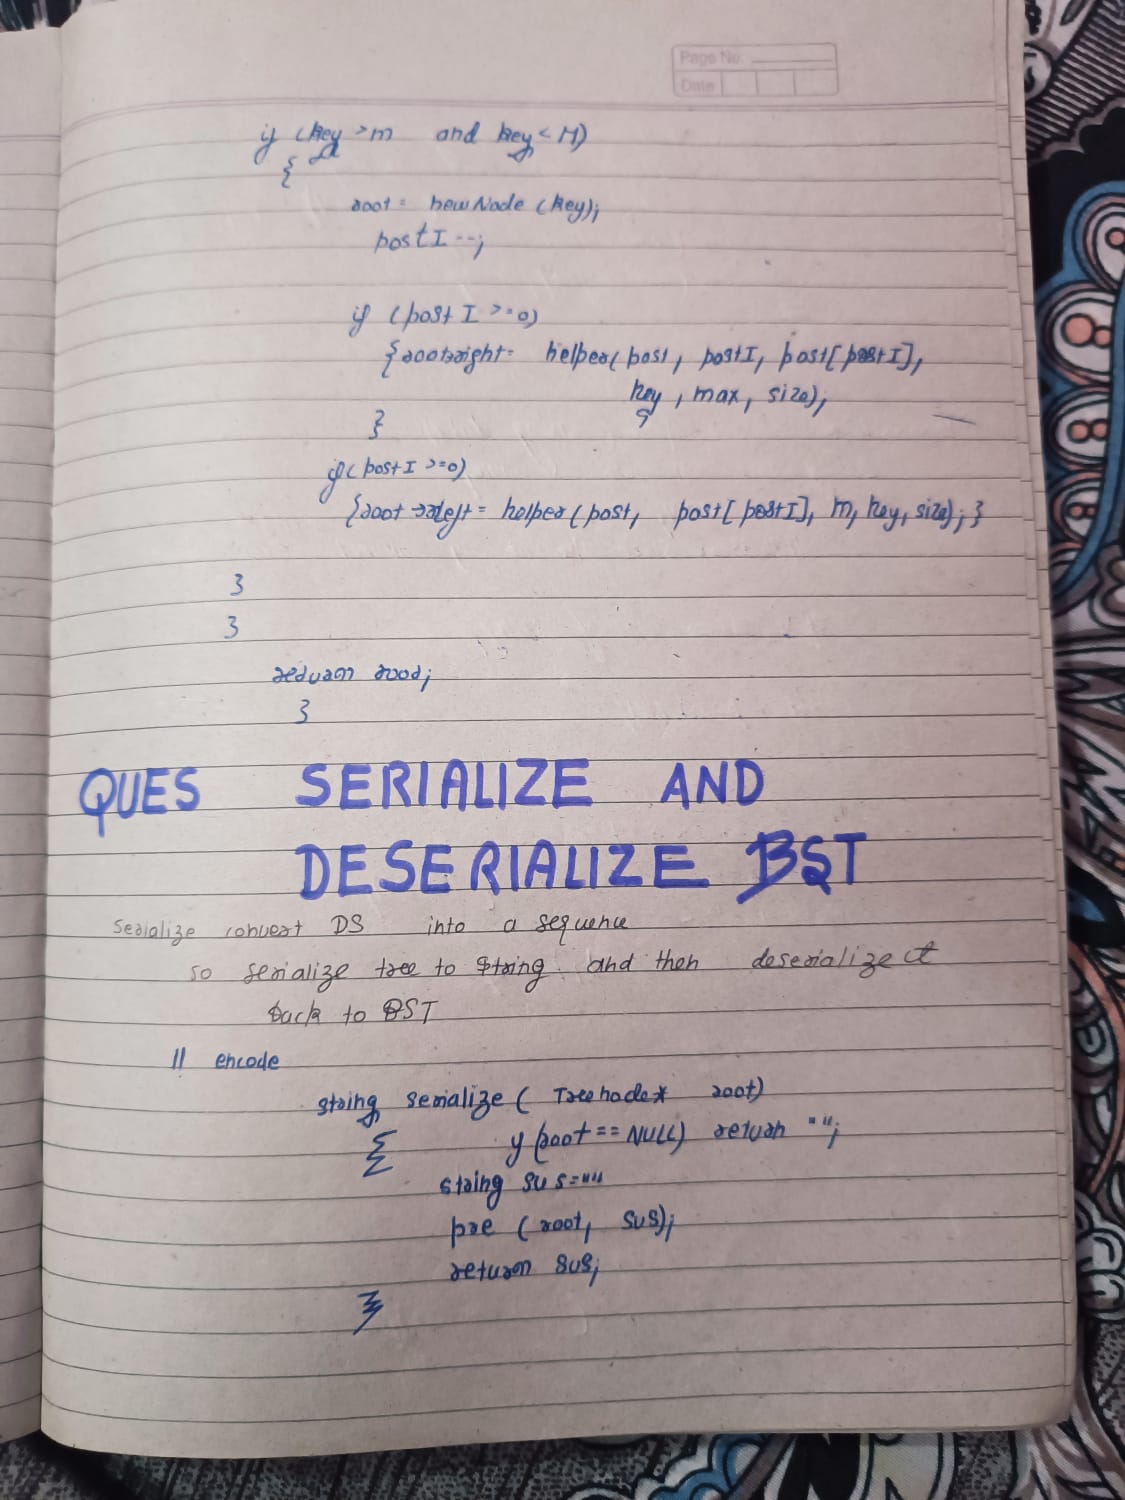 Page No.
Date
if (key >m and key < M)
{
root = newNode (key);
postI --;
if (post I >=0)
{root→right= helper( post, postI, post[postI],
key, max, size);
}
if( postI >=0)
{root →left = helper (post, post[ postI], m, key, size); }
}
}
return root;
}
QUES SERIALIZE AND
DESERIALIZE BST
serialize convert DS into a sequence
so serialize tree to string and then deserialize it
back to BST
// encode
string serialize ( Treenode* root)
{ if (root == NULL) return "";
string sus=""
pre (root, sus);
return sus;
}